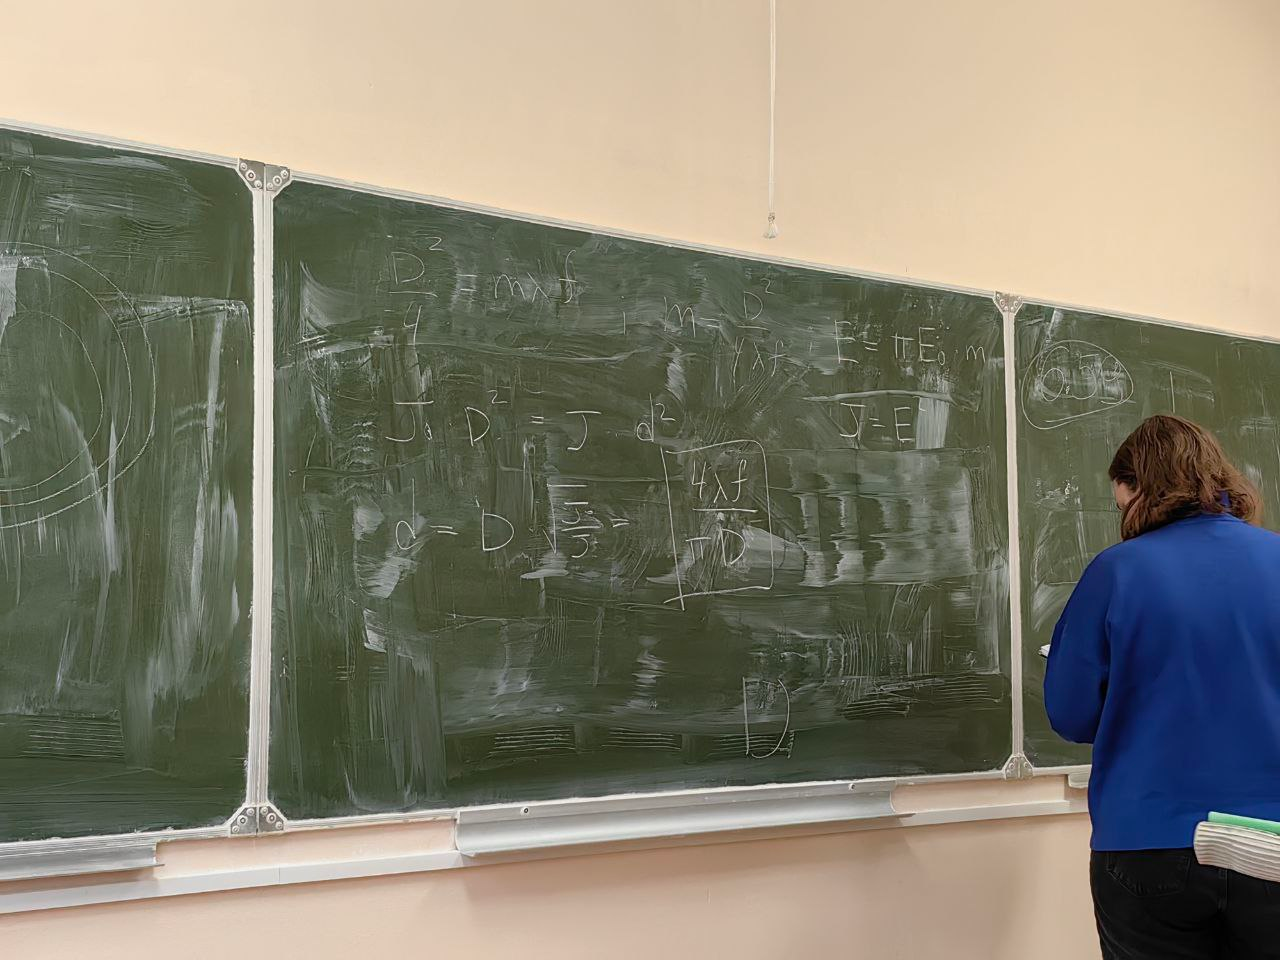 D²/4 = mλf, m = D²/4λf, E = πE₀ m
J₀ D² = J d²
J = E²
d = D √(J₀/J) = 4λf/πD
D